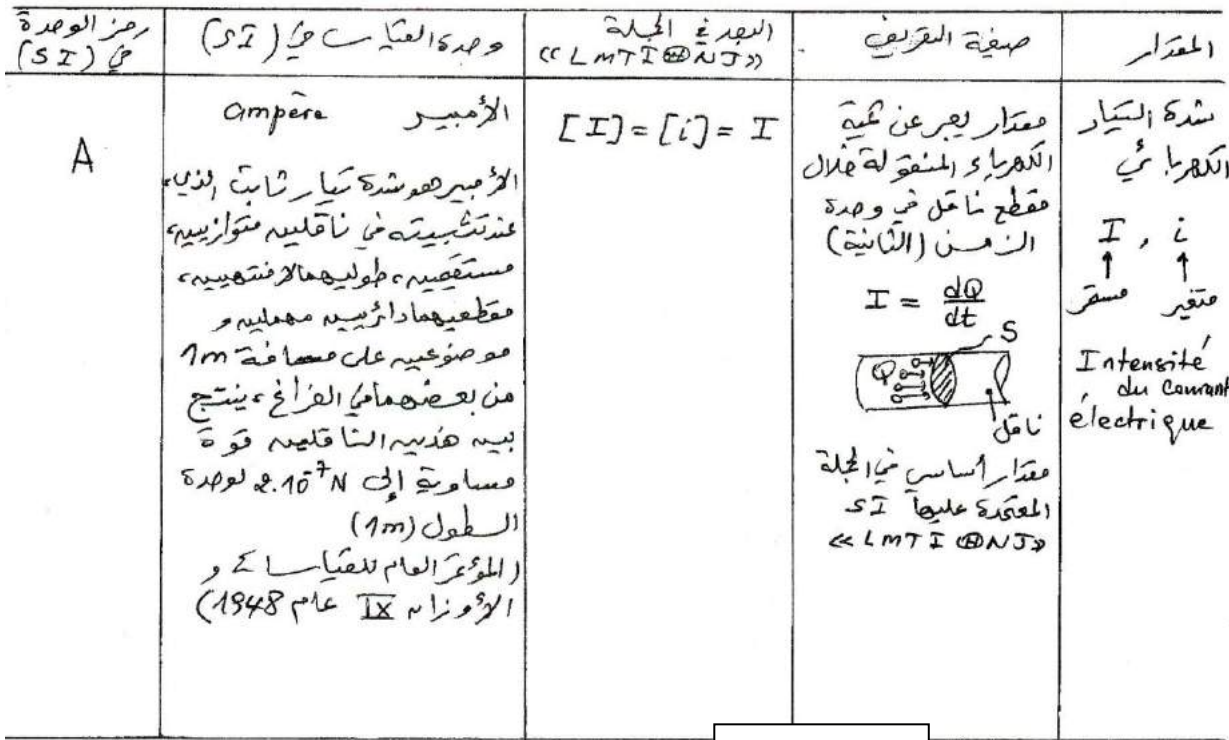 المقدار
صيغة التعريف
البعد في الجملة
«LMTIΘNJ»
وحدة القياس في (SI)
رمز الوحدة
في (SI)
شدة التيار
الكهربائي
I , i
مستقر متغير
Intensité
du courant
électrique
مقدار يعبر عن كمية
الكهرباء المنقولة خلال
مقطع ناقل في وحدة
الزمن (الثانية)
I = dQ/dt
S
Q
ناقل
مقدار أساسي في الجملة
المعتمدة عليها SI
«LMTIΘNJ»
[I] = [i] = I
الأمبير ampère
الأمبير هو شدة تيار ثابت الذي،
عند تثبيته في ناقلين متوازيين،
مستقيمين، طوليهما لا منتهيين،
مقطعيهما دائريين مهملين و
موضوعين على مسافة 1m
من بعضهما في الفراغ، ينتج
بين هذين الناقلين قوة
مساوية إلى 2.10⁻⁷N لوحدة
الطول (1m)
(المؤتمر العام للقياسات و
الأوزان IX عام 1948)
A